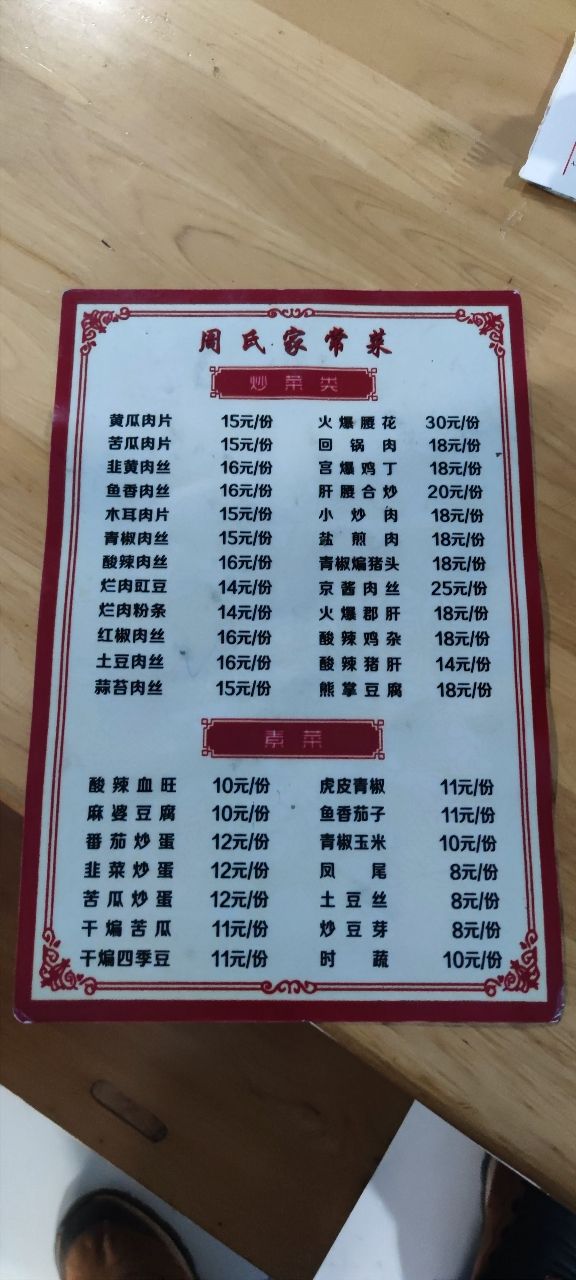 周氏家常菜
炒菜类
黄瓜肉片 15元/份 火爆腰花 30元/份
苦瓜肉片 15元/份 回锅肉 18元/份
韭黄肉丝 16元/份 宫爆鸡丁 18元/份
鱼香肉丝 16元/份 肝腰合炒 20元/份
木耳肉片 15元/份 小炒肉 18元/份
青椒肉丝 15元/份 盐煎肉 18元/份
酸辣肉丝 16元/份 青椒煸猪头 18元/份
烂肉豇豆 14元/份 京酱肉丝 25元/份
烂肉粉条 14元/份 火爆郡肝 18元/份
红椒肉丝 16元/份 酸辣鸡杂 18元/份
土豆肉丝 16元/份 酸辣猪肝 14元/份
蒜苔肉丝 15元/份 熊掌豆腐 18元/份
素菜
酸辣血旺 10元/份 虎皮青椒 11元/份
麻婆豆腐 10元/份 鱼香茄子 11元/份
番茄炒蛋 12元/份 青椒玉米 10元/份
韭菜炒蛋 12元/份 凤尾 8元/份
苦瓜炒蛋 12元/份 土豆丝 8元/份
干煸苦瓜 11元/份 炒豆芽 8元/份
干煸四季豆 11元/份 时蔬 10元/份